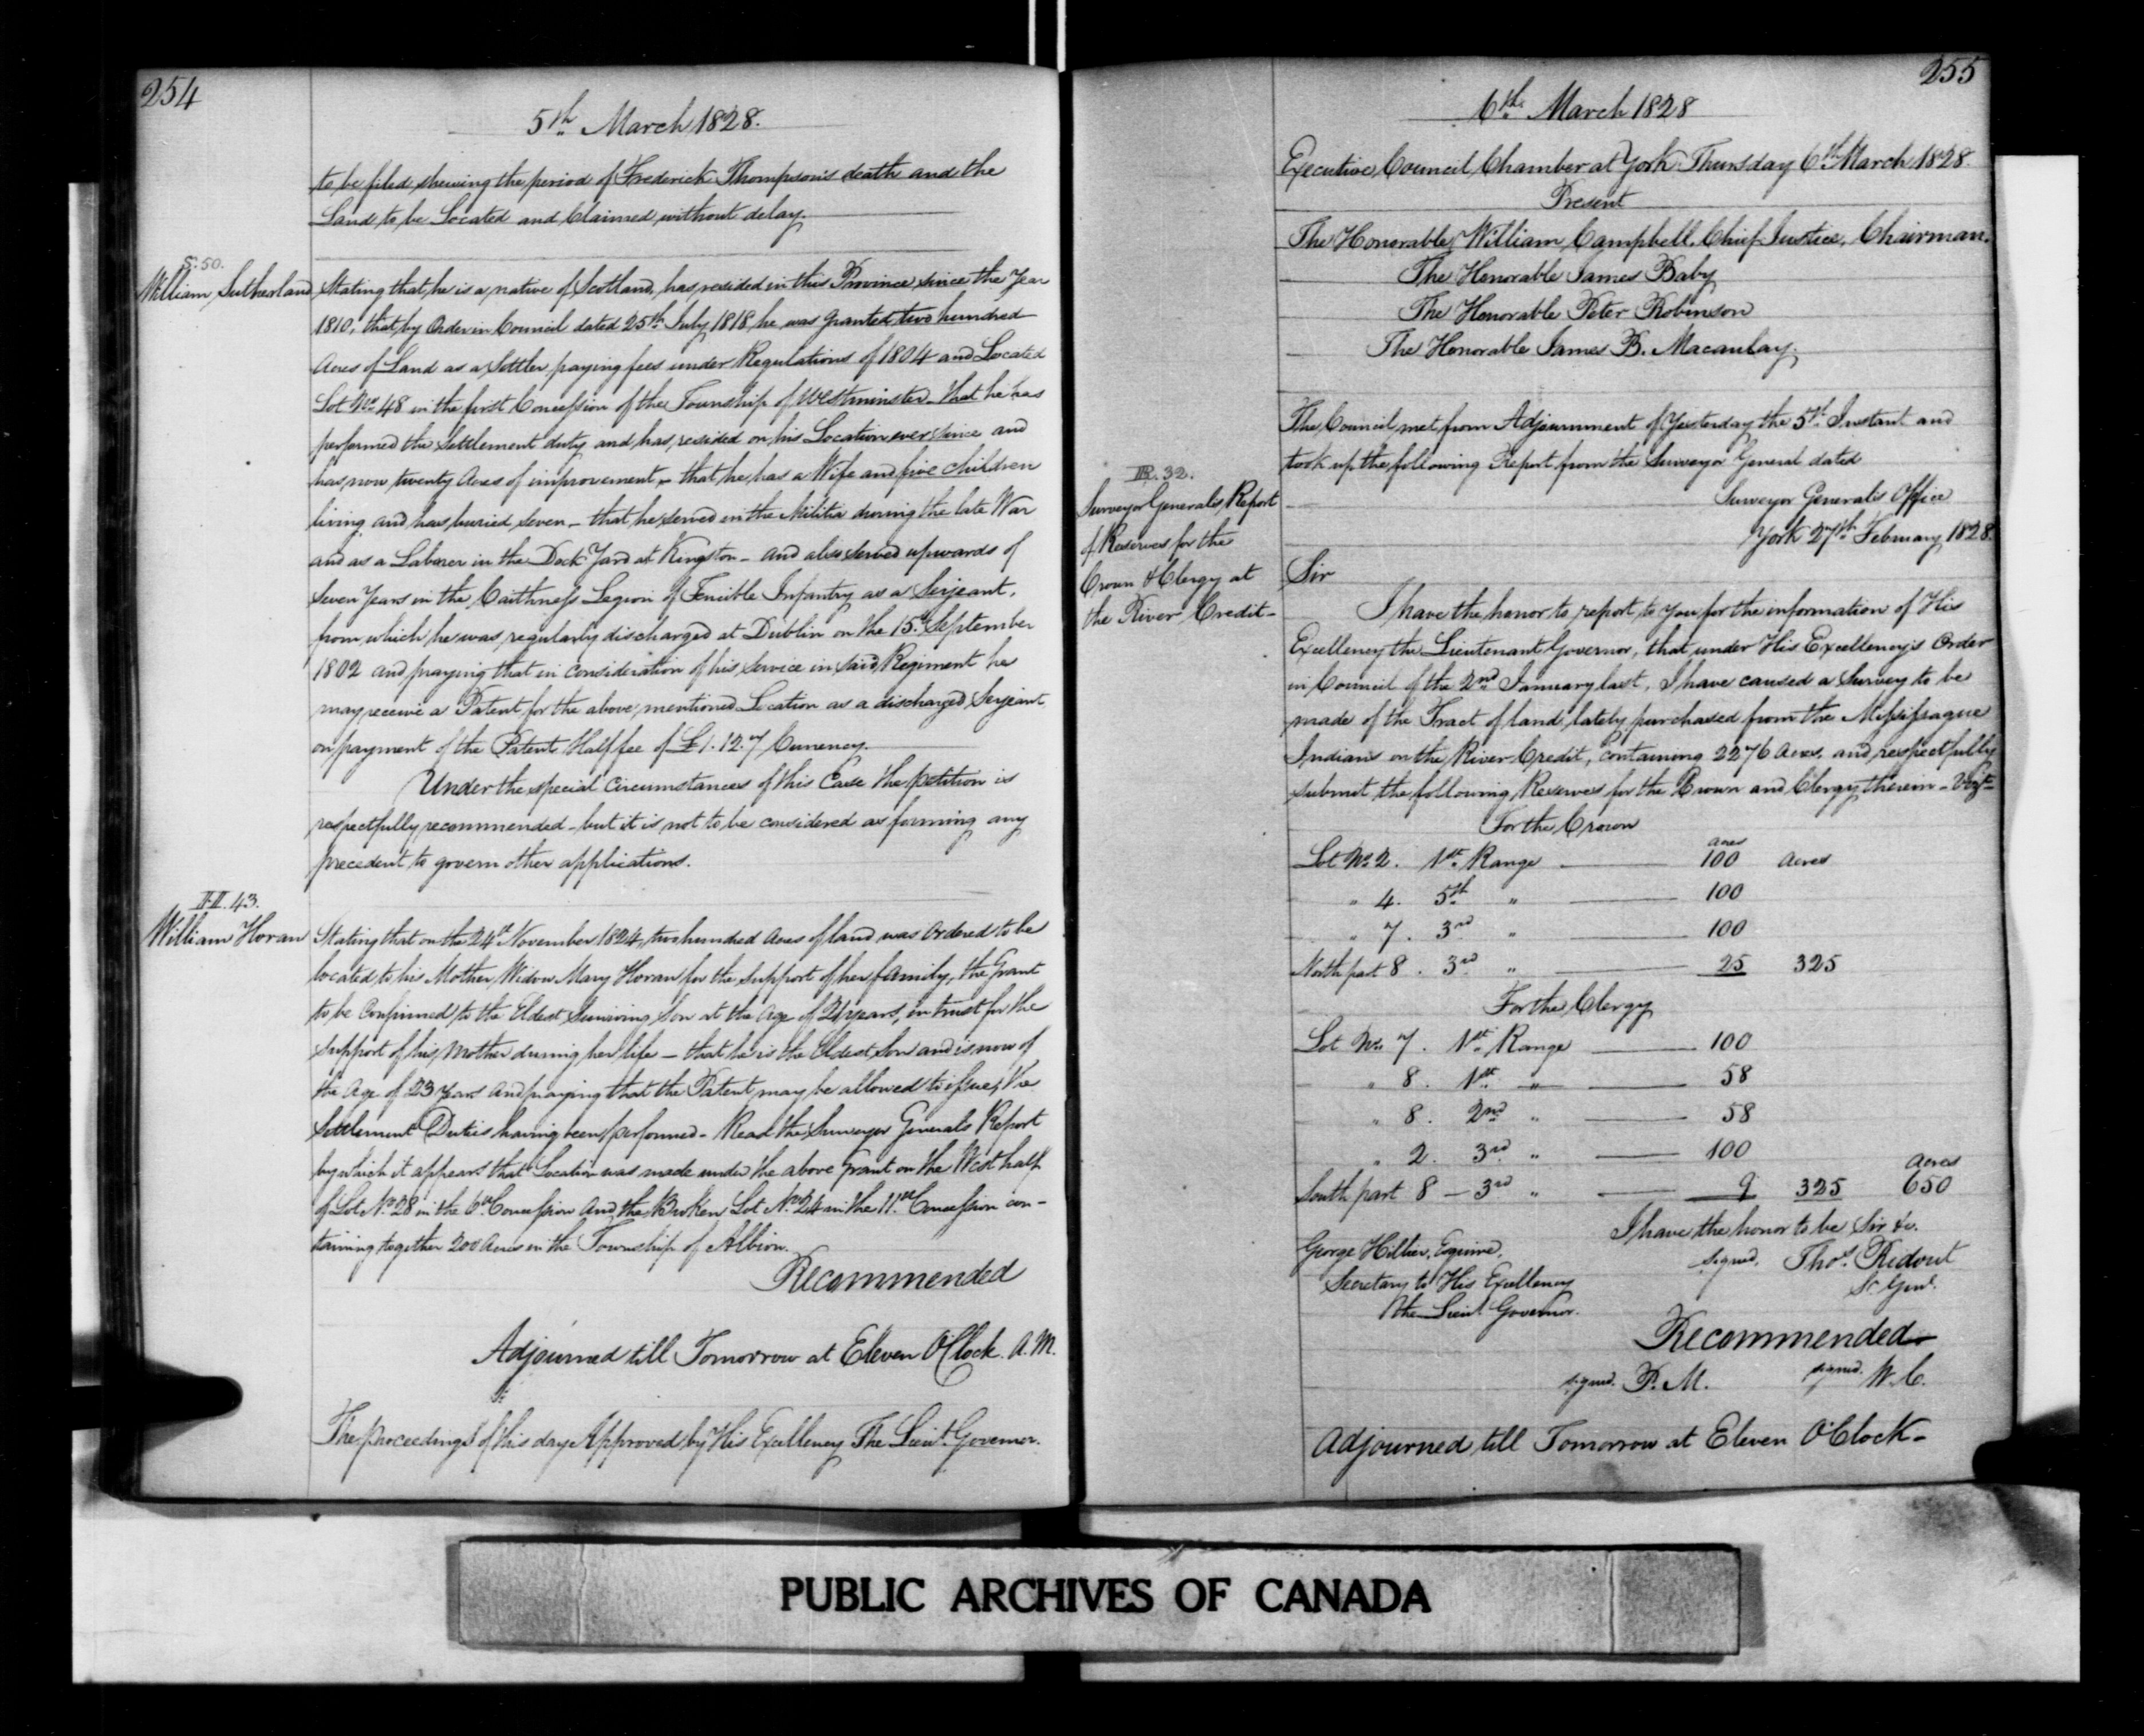 254
5th March 1828.
to be filed shewing the period of Frederick Thompson's death and the
Land to be Located and Claimed without delay.
S. 50.
William Sutherland
Stating that he is a native of Scotland, has resided in this Province since the Year
1810, that by Order in Council dated 25th July 1818 he was granted two hundred
Acres of Land as a Settler paying fees under Regulations of 1804 and Located
Lot No. 48 in the first Concession of the Township of Westminster - that he has
performed the Settlement duty and has resided on his Location ever since and
has now twenty Acres of improvement - that he has a Wife and five children
living and has buried seven - that he served in the Militia during the late War
and as a Laborer in the Dock Yard at Kingston - and also served upwards of
Seven Years in the Caithness Legion of Fencible Infantry as a Serjeant,
from which he was regularly discharged at Dublin on the 15th September
1802 and praying that in consideration of his service in said Regiment he
may receive a Patent for the above mentioned Location as a discharged Serjeant
on payment of the Patent Half fee of £1.12.7 Currency.
Under the special circumstances of this Case the petition is
respectfully recommended - but it is not to be considered as forming any
precedent to govern other applications.
H. 43.
William Horan
Stating that on the 24th November 1824, two hundred Acres of land was ordered to be
located to his Mother Widow Mary Horan for the support of her family, the Grant
to be Confirmed to the Eldest Surviving Son at the Age of 21 years, in trust for the
support of his Mother during her life - that he is the Eldest Son and is now of
the Age of 23 years and praying that the Patent may be allowed to issue, the
Settlement Duties having been performed - Read the Surveyor Generals Report
by which it appears that Location was made under the above Grant on the West half
of Lot No. 28 in the 6th Concession and the Broken Lot No. 24 in the 11th Concession con-
taining together 200 Acres in the Township of Albion.
Recommended
Adjourned till Tomorrow at Eleven O'Clock. A.M.
The proceedings of this day Approved by His Excellency The Lieut. Governor.
255
6th March 1828
Executive Council Chamber at York Thursday 6th March 1828.
Present
The Honorable William Campbell, Chief Justice, Chairman.
The Honorable James Baby
The Honorable Peter Robinson
The Honorable James B. Macaulay.
The Council met from Adjournment of Yesterday the 5th Instant and
took up the following Report from the Surveyor General dated
R. 32.
Surveyor Generals Report
of Reserves for the
Crown & Clergy at
the River Credit -
Surveyor General's Office
York 27th February 1828.
Sir
I have the honor to report to you for the information of His
Excellency the Lieutenant Governor, that under His Excellency's Order
in Council of the 2nd January last, I have caused a Survey to be
made of the Tract of land lately purchased from the Missisague
Indians on the River Credit, containing 2276 Acres, and respectfully
submit the following Reserves for the Crown and Clergy therein - Vizt
For the Crown
acres
Lot No. 2. 1st Range 100 Acres
" 4. 5th " 100
" 7. 3rd " 100
North part 8. 3rd " 25 325
For the Clergy
Lot No. 7. 1st Range 100
" 8. 1st " 58
" 8. 2nd " 58
" 2. 3rd " 100
acres
South part 8 - 3rd " 9 325 650
I have the honor to be Sir &c.
George Hillier, Esquire,
signed, Thos. Ridout
Secretary to His Excellency
Sr. Genl.
the Lieut. Governor.
Recommended
signed. P. M. signed. W. C.
Adjourned till Tomorrow at Eleven O'Clock -
PUBLIC ARCHIVES OF CANADA